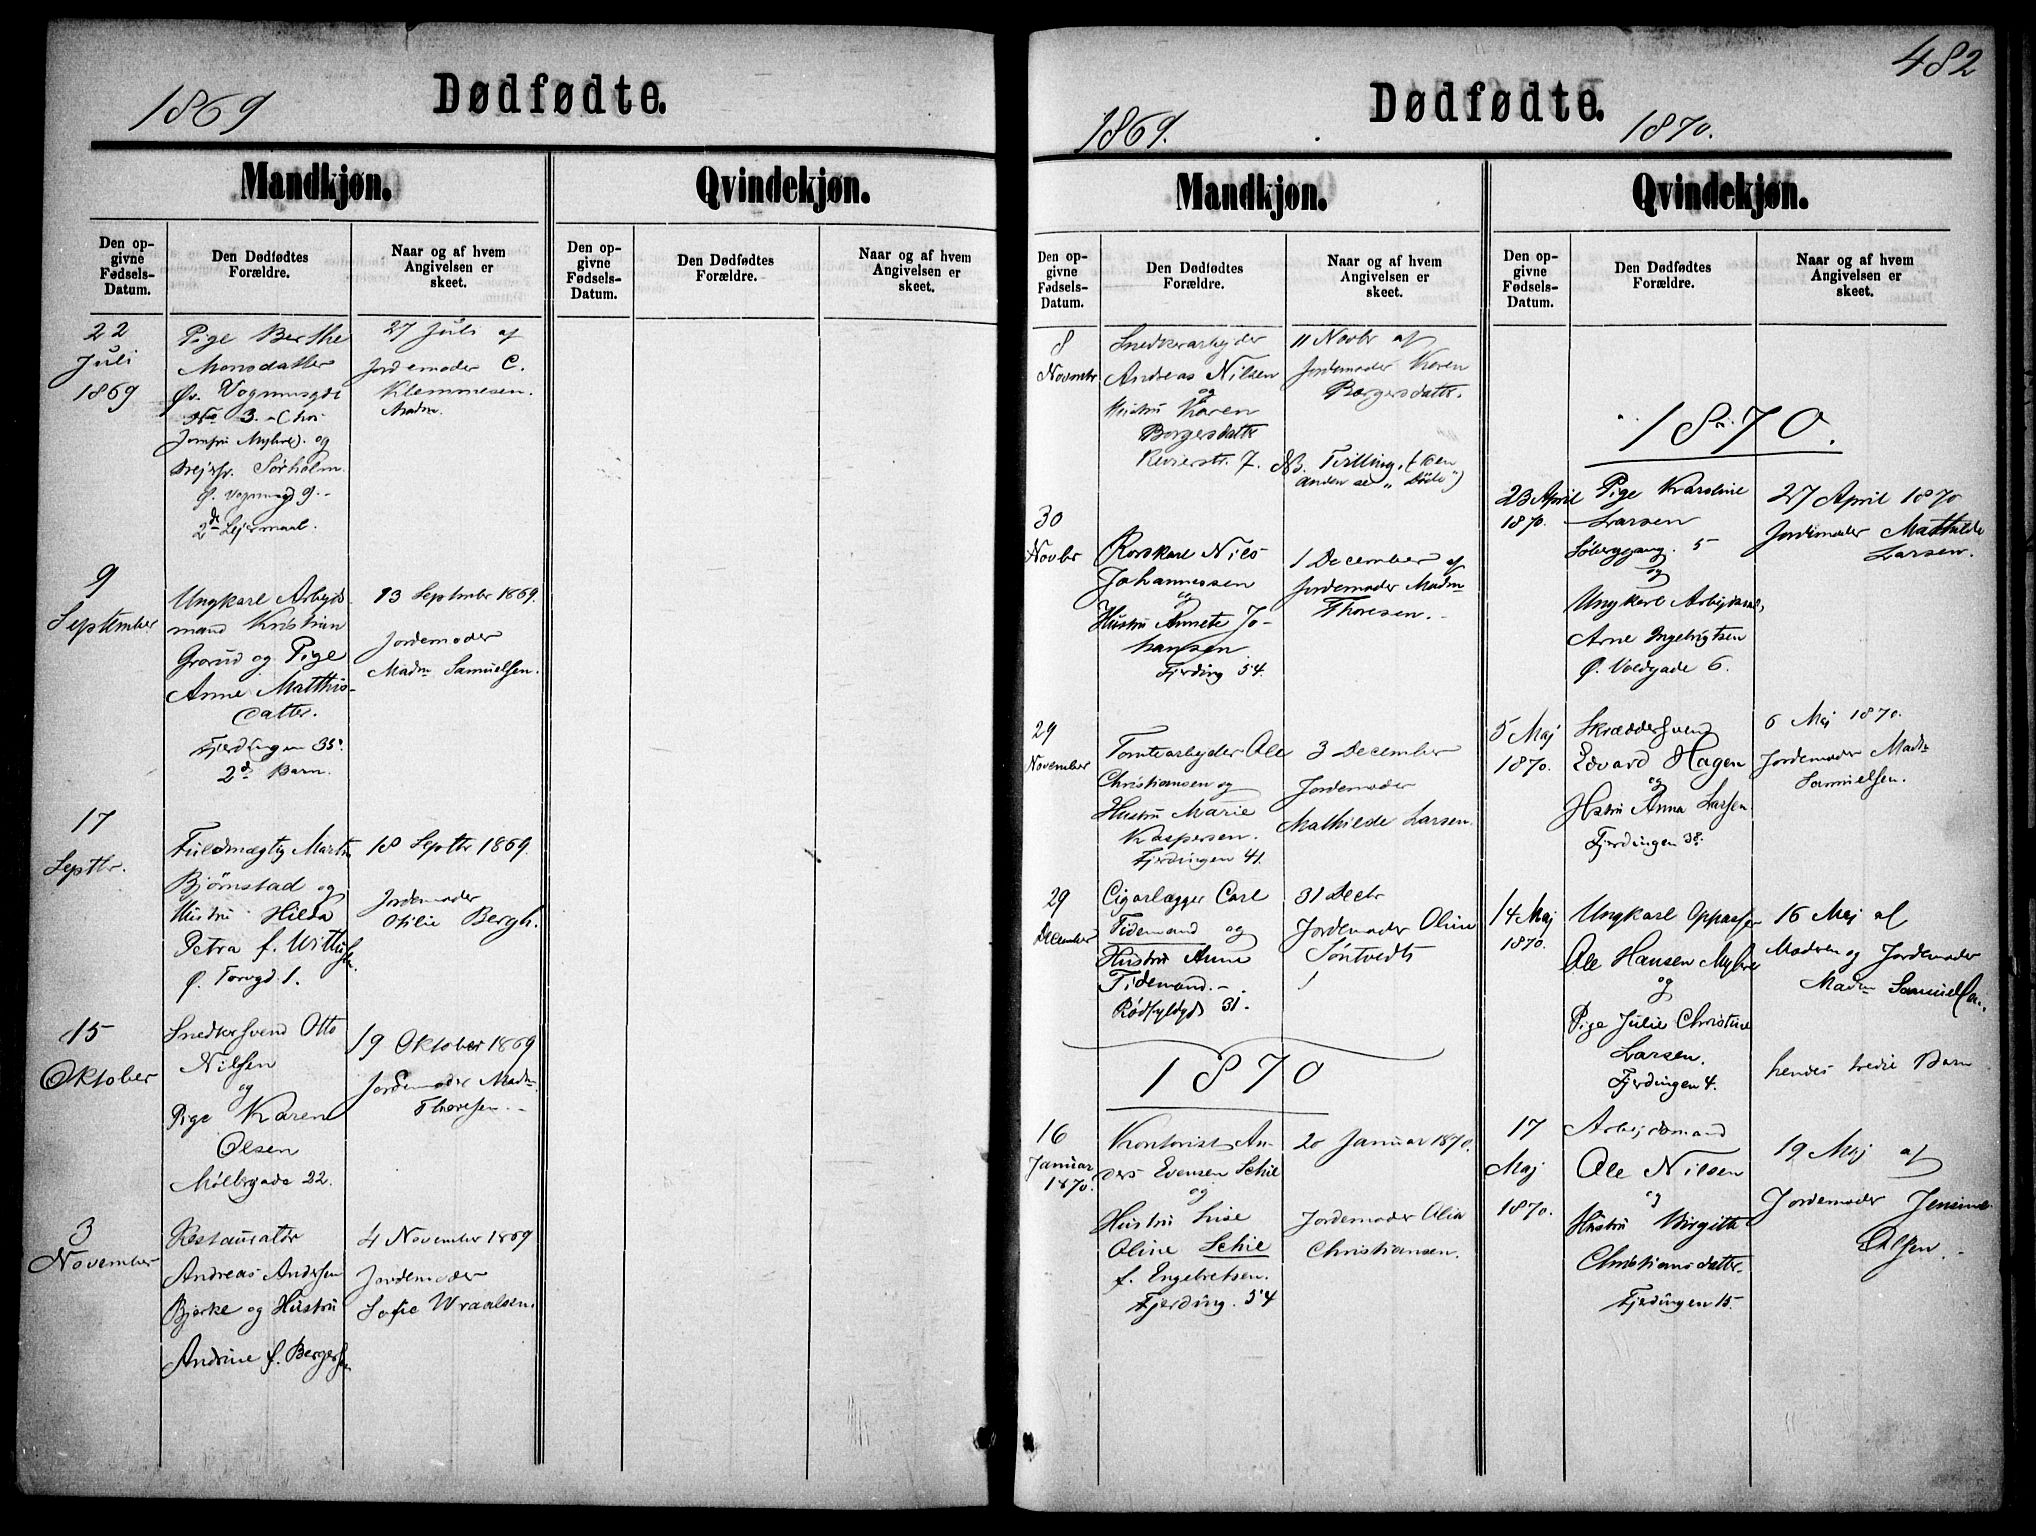 1869
Dødfødte.
Mandkjøn.
Qvindekjøn.
Den op-
givne
Fødsels-
Datum.
Den Dødfødtes
Forældre.
Naar og af hvem
Angivelsen er
skeet.
Den op-
givne
Fødsels-
Datum.
Den Dødfødtes
Forældre.
Naar og af hvem
Angivelsen er
skeet.
22
Juli
1869
Pige Berthe
Monsdatter
Øv. Vognmgde
No 3. (hos
Jomfru Myhre). og
Sørholm
Ø. Vognmgd 9.
2de Leiermaal.
27 Juli af
Jordemoder C.
Klemmesen.
Madm.
9
September
Ungkarl Arbejds-
mand Kristian
Grorud og Pige
Anne Matthis-
datter.
Fjerdingen 35.
2d Barn.
13 September 1869.
Jordemoder
Madm Samuelsen.
17
Septbr.
Fuldmægtig Martin
Bjørnstad og
Hustru Hilda
Petra f.
Ø. Torvgd. 1.
18 Septbr 1869.
Jordemoder
Otilie Bergh.
15
Oktober
Snedkersvend Otto
Nilsen
og
Pige Karen
Olsen
Møllergade 22.
19 Oktober 1869
Jordemoder Madm
Thoresen.
3
November
Restauratør
Andreas Andersen
Bjerke og Hustru
Andrine f. Bergersen
4 November 1869
Jordemoder
Sofie Wraalsen.
482
Dødfødte.
1869.
1870.
Mandkjøn.
Qvindekjøn.
Den op-
givne
Fødsels-
Datum.
Den Dødfødtes
Forældre.
Naar og af hvem
Angivelsen er
skeet.
Den op-
givne
Fødsels-
Datum.
Den Dødfødtes
Forældre.
Naar og af hvem
Angivelsen er
skeet.
8
Novembr
Snedkerarbejder
Andreas Nilsen
og
Hustru Karen
Borgersdatter
Revierstr. 7.
11 Novbr af
Jordemoder Karen
Borgersdatter.
NB. Tvilling, (den
anden se "Døde")
30
Novbr
Rorskarl Nils
Johannessen
og
Hustru Annete Jo-
hansen
Fjerding 54.
1 December af
Jordemoder Madm
Thoresen.
29
November
Tomtearbejder Ole
Christiansen og
Hustru Marie
Kaspersen.
Fjerdingen 41.
3 December
Jordemoder
Mathilde Larsen.
29
December
Cigarlægger Carl
Tidemand og
Hustru Anne
Tidemand.
Rødfyldgd 31.
31 Decbr
Jordemoder Oline
Søntvedt
1870
16
Januar
1870.
Kontorist An-
ders Evensen Schie
og
Hustru Lise
Oline Schie
f. Engebretsen.
Fjerding. 54
20 Januar 1870.
Jordemoder Olia
Christiansen.
1870.
23 April
1870.
Pige Karoline
Larsen
Søberggang. 5
og
Ungkarl Arbejdsmd,
Arne Ingebrigtsen
Ø. Voldgade 6.
27 April 1870
Jordemoder Mathilde
Larsen.
5 Maj
1870.
Skræddersvend
Edvard Hagen
og
Hstru Anna Larsen
Fjerdingen 38.
6 Maj 1870.
Jordemoder Madm
Samuelsen.
14 Maj
1870.
Ungkarl Oppasser
Ole Hansen Myhre
og
Pige Julie Christine
Larsen.
Fjerdingen 4.
16 Maj af
Moderen og Jordemoder
Madm Samuelsen.
hendes tredie Barn
17
Maj
1870.
Arbejdsmand
Ole Nilsen
og
Hustru Birgitte
Christiansdatter.
Fjerdingen 15.
19 Maj af
Jordemoder Jensine
Olsen.